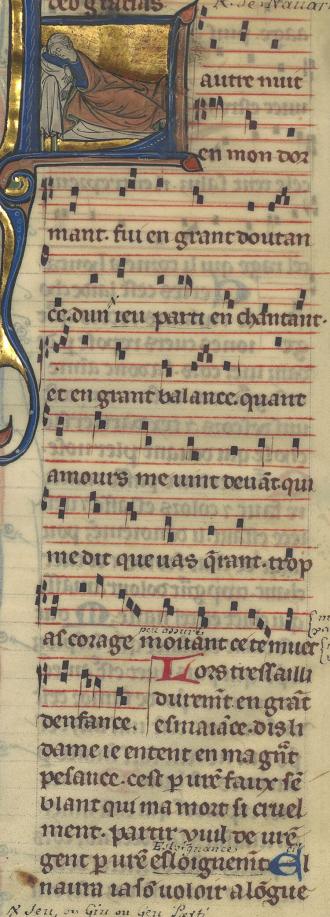 deo gracias
R. de Navar
autre nuit
en mon dor
mant. fui en grant doutan
ce. dun ieu parti en chantant.
et en grant balance. quant
amours me uint deuāt qui
me dit que uas q̄rant. trop
as corage mouant ce te muet
denfance. Lors tressailli
duremt en grāt
esmaiāce. dis li
dame ie entent en ma gn̄t
pesance. cest p ur̄e faux sē
blant qui ma mort si cruel
ment. partir vuil de ur̄e
Esloignance
gent p ur̄e esloignemt El
naura ia sō uoloir a lōgue